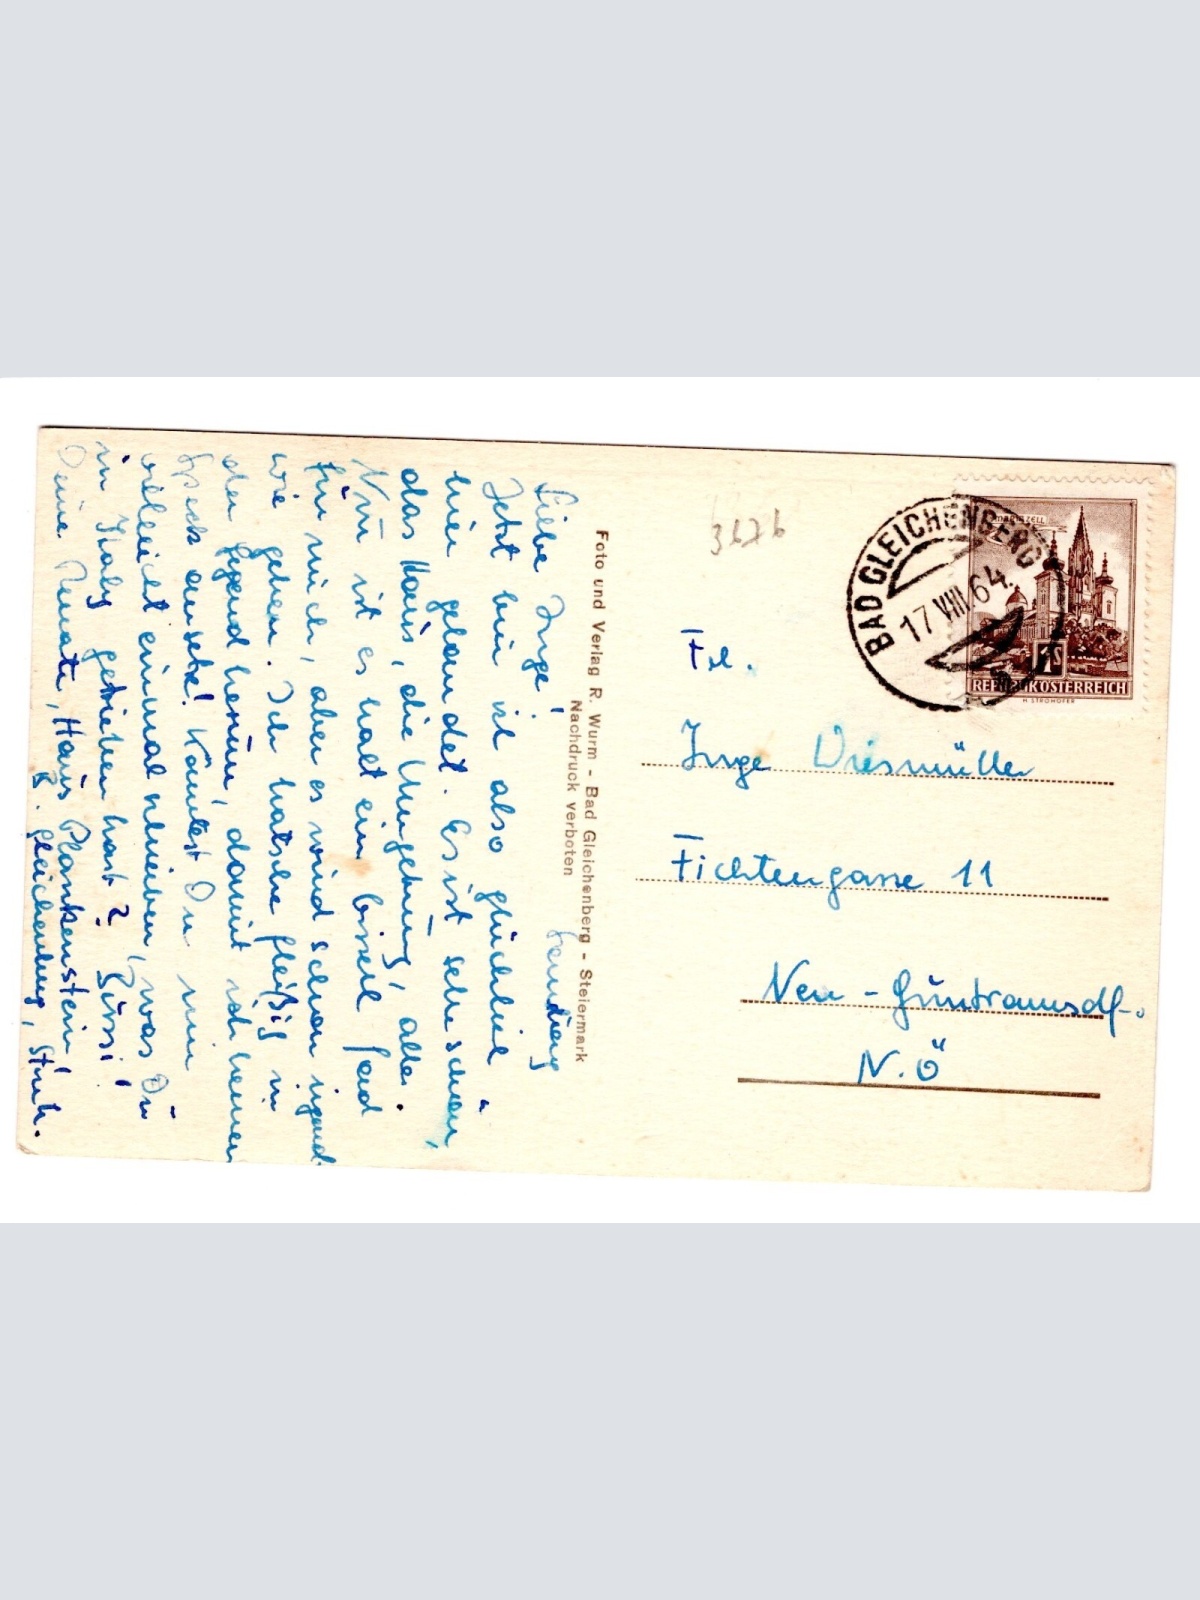 Samstag
Liebe Inge!
Jetzt bin ich also glücklich
hier gelandet. Es ist sehr schön,
das Haus, die Umgebung, alles.
Nur ist es halt ein bisserl fad
für mich, aber es wird schon irgend
wie gehen. Ich hatsche fleißig in
der Gegend herum, damit ich keinen
Speck ansetz! Könntest Du mir
vielleicht einmal schreiben, was Du
in Italy getrieben hast? Bussi!
Deine Renate, Haus Plankenstein!
B. Gleichenberg, Stmk.
Foto und Verlag R. Wurm - Bad Gleichenberg - Steiermark
Nachdruck verboten
3676
BAD GLEICHENBERG
17 VIII 64
MARIAZELL
1S
REPUBLIK ÖSTERREICH
H. STROHOFER
Frl.
Inge Diesmüller
Fichtengasse 11
Neu-Guntramsdf.
N.Ö